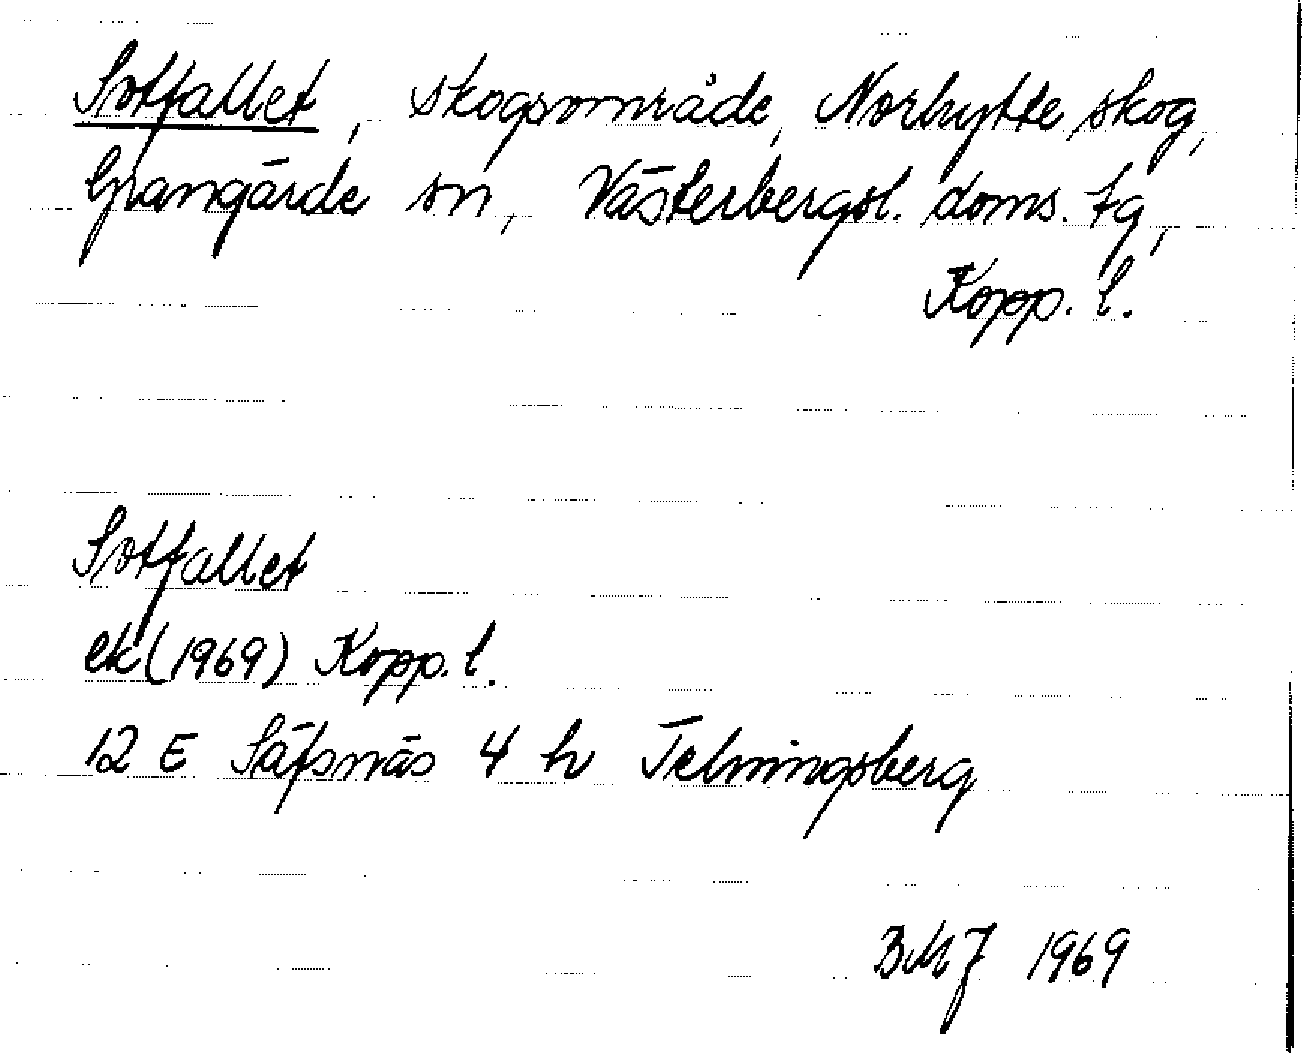 Sotfallet, skogsområde, Norhytte skog,
Grangärde sn, Västerbergsl. doms. tg,
Kopp. l.
Sotfallet
ek (1969) Kopp. l.
12 E Säfsnäs 4 h Telningsberg
BMJ 1969